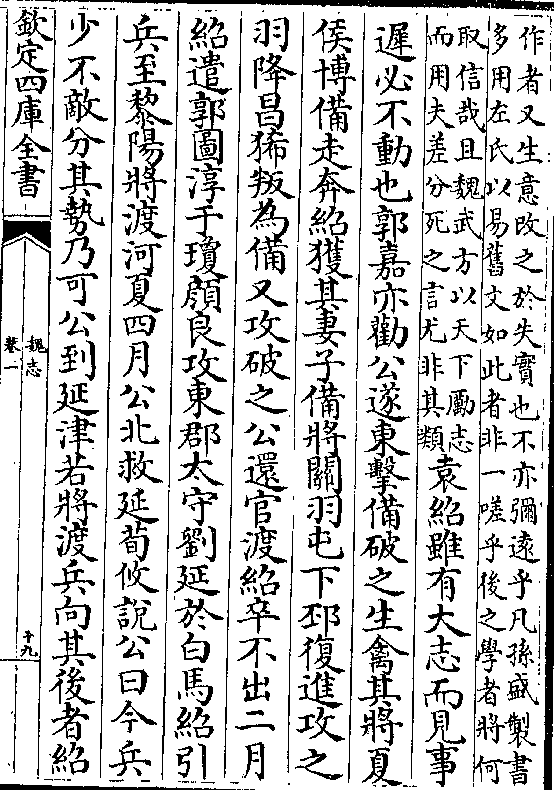 作者又生意改之於失實也不亦彌遠乎凡孫盛製書
多用左氏以易舊文如此者非一嗟乎後之學者將何
取信哉且魏武方以天下勵志
而用夫差分死之言尤非其類
袁紹雖有大志而見事
遲必不動也郭嘉亦勸公遂東擊備破之生禽其將夏
侯博備走奔紹獲其妻子備將關羽屯下邳復進攻之
羽降昌狶叛為備又攻破之公還官渡紹卒不出二月
紹遣郭圖淳于瓊顔良攻東郡太守劉延於白馬紹引
兵至黎陽將渡河夏四月公北救延荀攸說公曰今兵
少不敵分其勢乃可公到延津若將渡兵向其後者紹
欽定四庫全書
魏志
卷一
十九